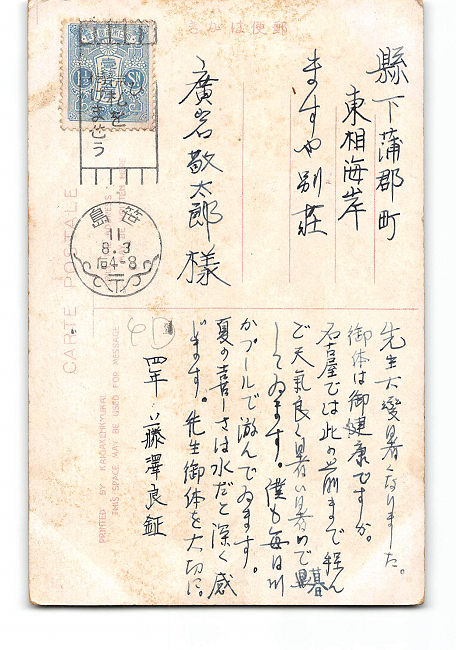 きがは便郵
縣下蒲郡町
東相海岸
ますや別荘
廣岩敬太郎様
1½ SN
笹島
11
8.3
后4-8
CARTE POSTALE
PRINTED BY KAMAKENKYUKAI
THIS SPACE MAY BE USED FOR MESSAGE
先生大変暑くなりました。
御体は御健康ですか。
名古屋では此の前まで
ご天氣良く暑い暑いで暮
してゐます。僕も毎日川
かプールで游んでゐます。
夏の喜しさは水だと深く感
じます。先生御体を大切に。
四年 藤澤良鉦